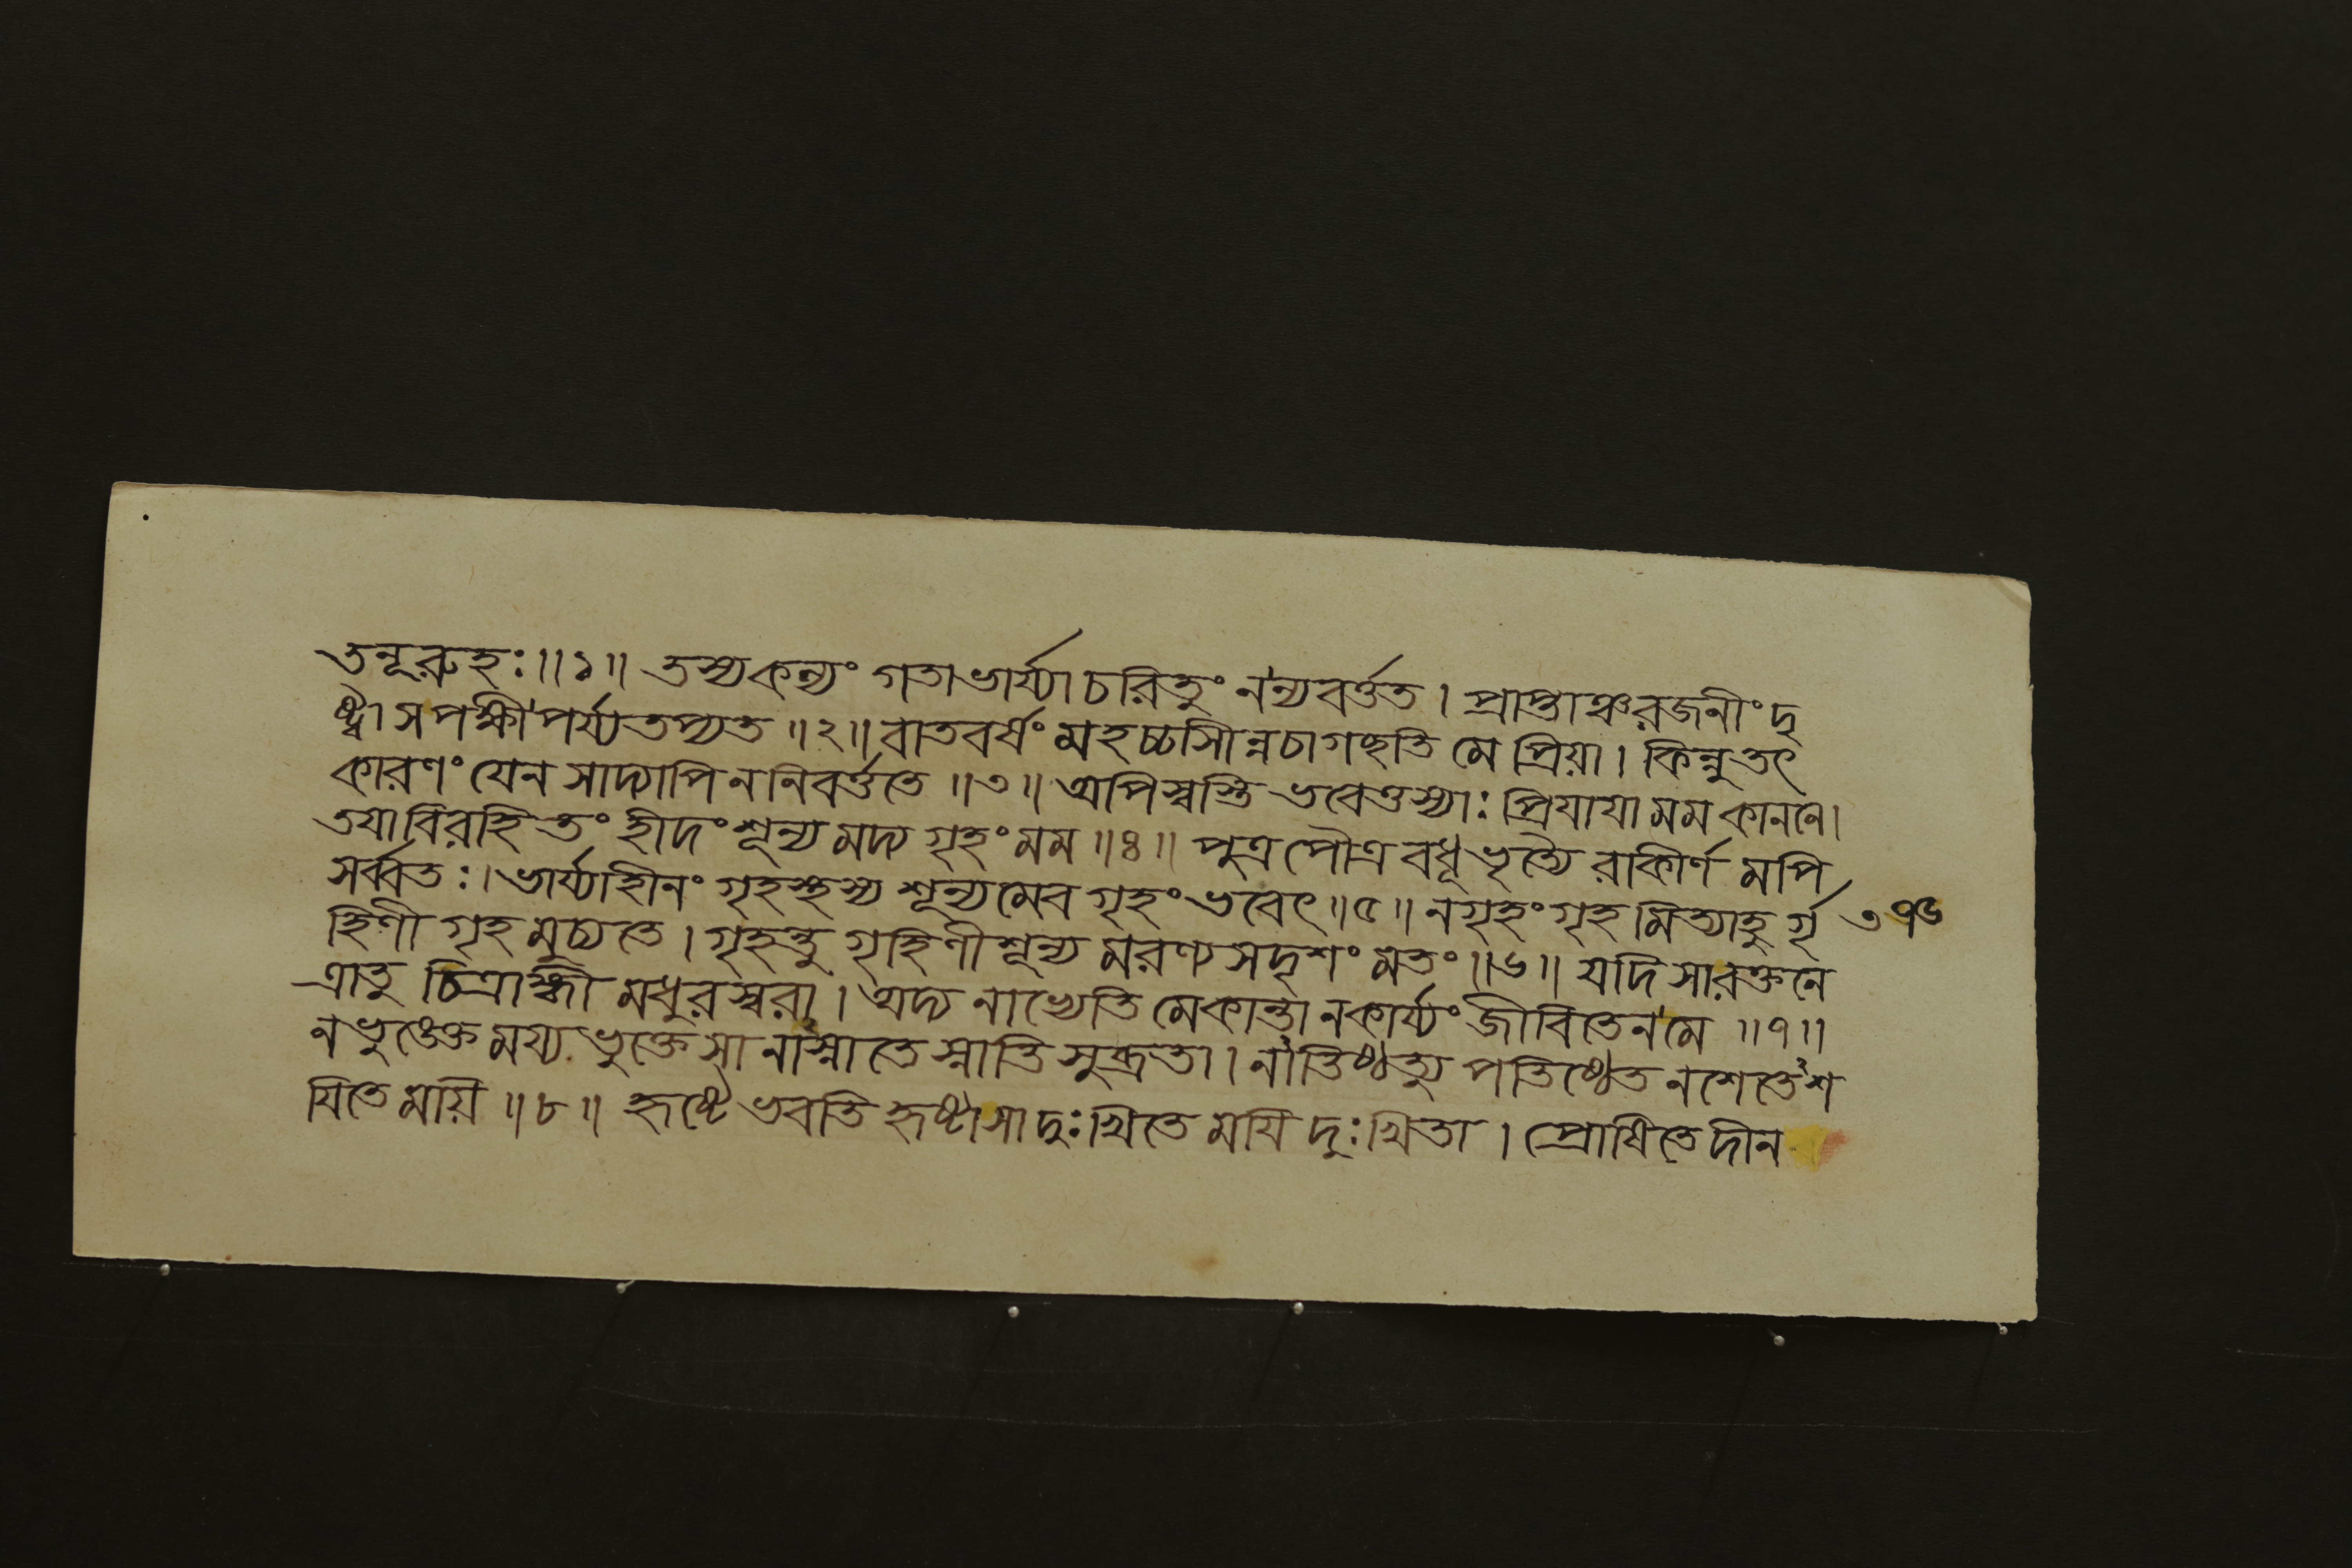 তনূরুহঃ॥১॥ তস্যকল্যং গতাভার্য্যাচরিতুং নন্যবর্ত্তত। প্রাপ্তাঞ্চরজনীংদৃ
ষ্ট্বা সপক্ষীপর্য্যতপ্যত॥২॥বাতবর্ষং মহচ্চাসীন্নচাগচ্ছতি মে প্রিয়া। কিন্নুতৎ
কারণং যেন সাদ্যাপি ননিবর্ত্ততে॥৩॥ অপিস্বস্তি ভবেত্তস্যাঃ প্রিযাযা মম কাননে।
তযাবিরহিতং হীদংশূন্য মদ্য গৃহং মম॥৪॥ পুত্রপৌত্র বধূভৃত্যৈ রাকীর্ণ মপি
সর্ব্বতঃ। ভার্য্যাহীনং গৃহস্থস্য শূন্যমেব গৃহং ভবেৎ॥৫॥ নগৃহং গৃহ মিত্যাহু র্গৃ ৩৭৬
হিণী গৃহ মুচ্যতে। গৃহন্তু গৃহিণীশূন্য মরণ্যসদৃশং মতং॥৬॥ যদি সারক্তনে
ত্রাতু চিত্রাঙ্গী মধুরস্বরা। অদ্য নাভ্যেতি মেকান্তা নকার্য্যং জীবিতেন মে॥৭॥
নভুঙ্ক্তে ময্য ভুক্তে সা নাস্নাতে স্নাতি সুব্রতা। নাতিষ্ঠত্যু পতিষ্ঠেত নশেতেশ
যিতে ময়ি॥৮॥ হৃষ্টে ভবতি হৃষ্টাসাদুঃখিতে মযি দুঃখিতা। প্রোষিতে দীন